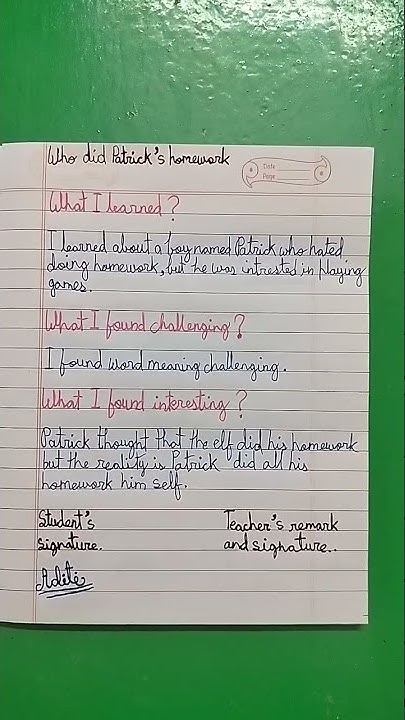 Who did Patrick's homework
Date
Page
What I learned?
I learned about a boy named Patrick who hated
doing homework, but he was intrested in playing
games.
What I found challenging?
I found word meaning challenging.
What I found interesting?
Patrick thought that the elf did his homework
but the reality is Patrick did all his
homework him self.
Student's
signature.
Teacher's remark
and signature..
Adite